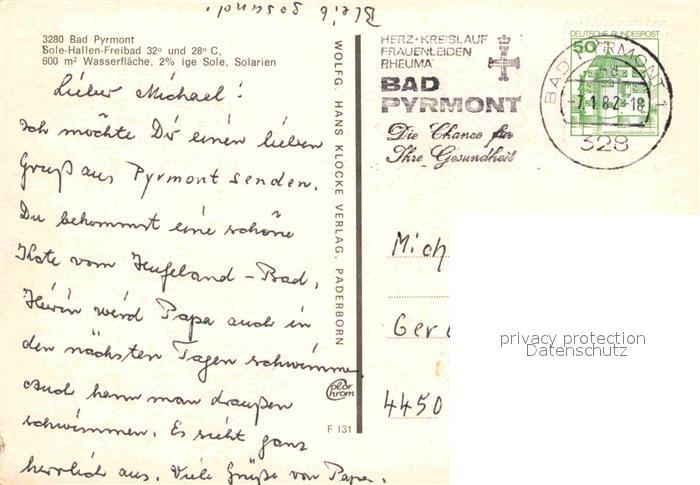 Bleib gesund!
3280 Bad Pyrmont
Sole-Hallen-Freibad 32° und 28° C,
600 m² Wasserfläche, 2% ige Sole, Solarien
Lieber Michael!
Ich möchte Dir einen lieben
Gruß aus Pyrmont senden.
Du bekommst eine schöne
Kate vom Hufeland-Bad,
Hierin wird Papa auch in
den nächsten Tagen schwimmen
Auch kann man draußen
schwimmen. Es sieht ganz
herrlich aus. Viele Grüße von Papa.
WOLFG. HANS KLOCKE VERLAG, PADERBORN
color chrom
F 131
HERZ·KREISLAUF
FRAUENLEIDEN
RHEUMA
BAD
PYRMONT
Die Chance für
Ihre Gesundheit
DEUTSCHE BUNDESPOST
50
BAD PYRMONT 1
-7.1.82-18
328
Mich
Ger
4450
privacy protection
Datenschutz